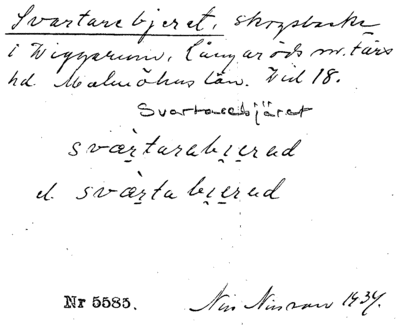 Svartarebjeret, skogsbacke
i Viggarum, Långaröds sn. Färs
hd. Malmöhus län. Vid 18.
Svartarebjäret
sværtarabi̯erad
el. sværtabi̯erad
Nr 5585. Nils Nilsson 1934.